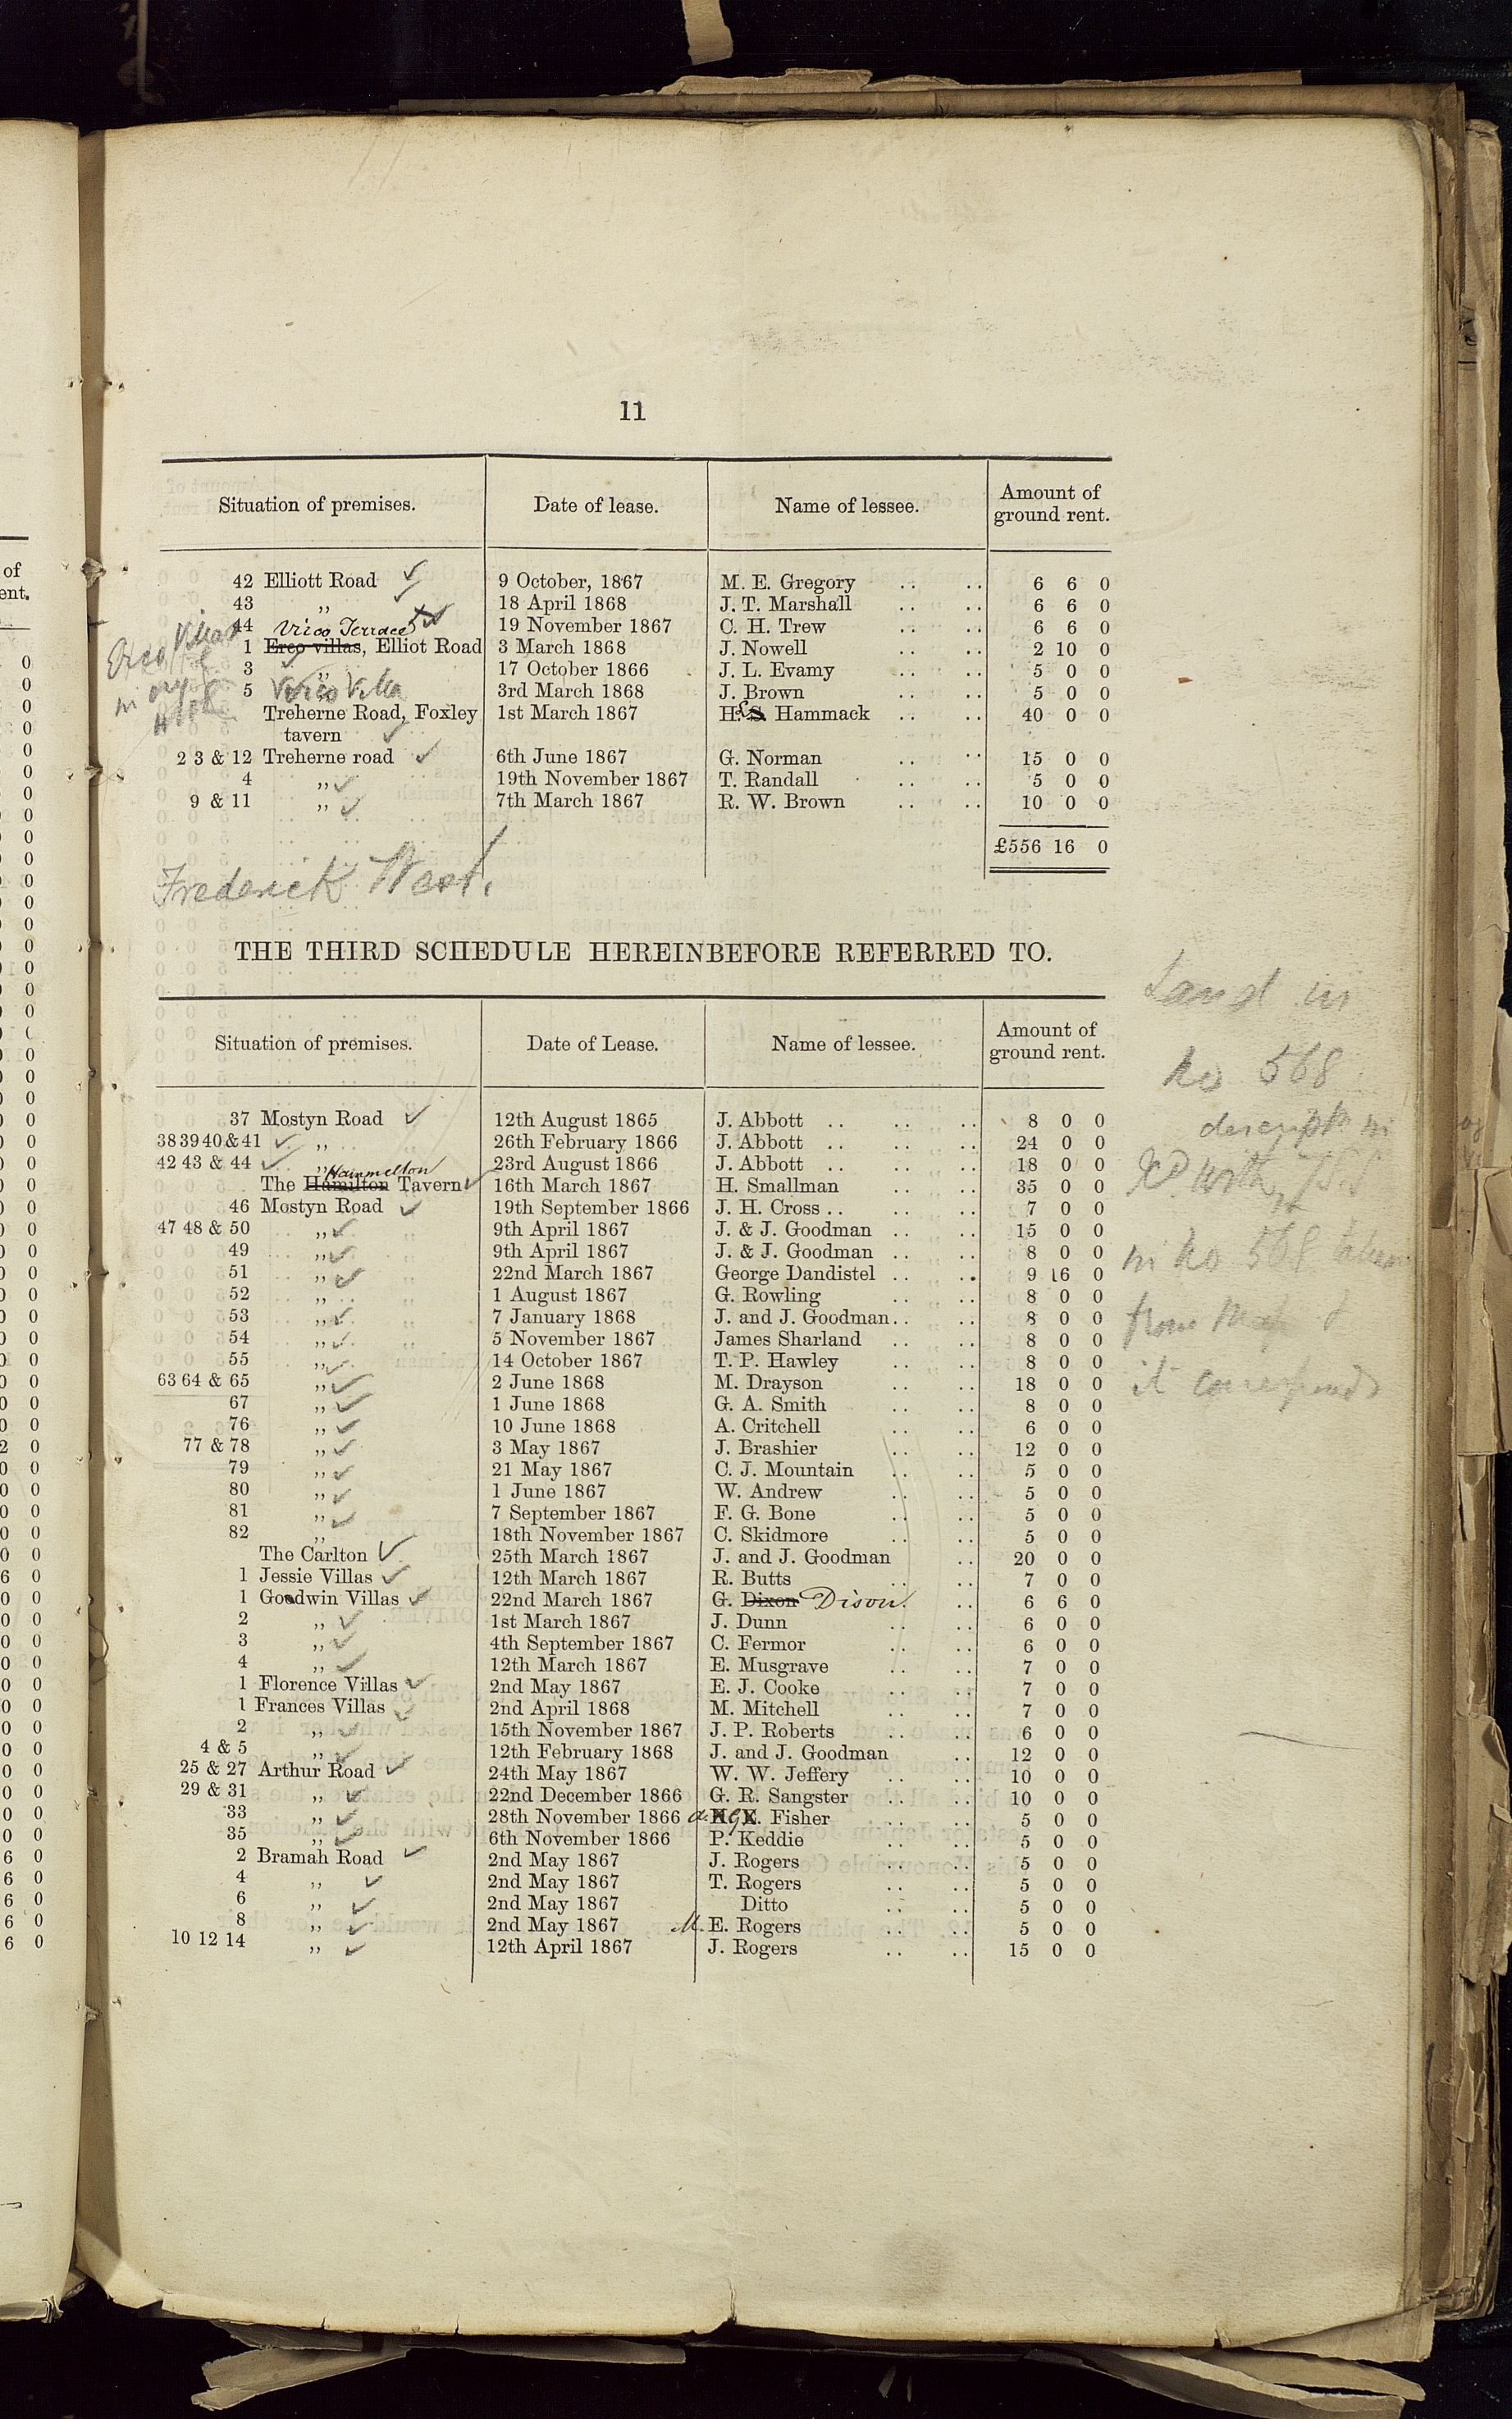 11
Situation of premises. Date of lease. Name of lessee. Amount of ground rent.
42 Elliott Road 9 October, 1867 M. E. Gregory .. .. 6 6 0
43 ,, 18 April 1868 J. T. Marshall .. .. 6 6 0
44 19 November 1867 C. H. Trew .. .. 6 6 0
Virco Terrace
1 Erco villas, Elliot Road 3 March 1868 J. Nowell .. .. 2 10 0
3 ,, 17 October 1866 J. L. Evamy .. .. 5 0 0
5 Virco Villa 3rd March 1868 J. Brown .. .. 5 0 0
Treherne Road, Foxley 1st March 1867 H. S. Hammack .. .. 40 0 0
tavern
2 3 & 12 Treherne road 6th June 1867 G. Norman .. .. 15 0 0
4 ,, 19th November 1867 T. Randall .. .. 5 0 0
9 & 11 ,, 7th March 1867 R. W. Brown .. .. 10 0 0
£556 16 0
Erco Villas
in
Frederick West.
THE THIRD SCHEDULE HEREINBEFORE REFERRED TO.
Situation of premises. Date of Lease. Name of lessee. Amount of ground rent.
37 Mostyn Road 12th August 1865 J. Abbott .. .. .. 8 0 0
38 39 40 & 41 ,, 26th February 1866 J. Abbott .. .. .. 24 0 0
42 43 & 44 ,, 23rd August 1866 J. Abbott .. .. .. 18 0 0
Hammelton
The Hamilton Tavern 16th March 1867 H. Smallman .. .. 35 0 0
46 Mostyn Road 19th September 1866 J. H. Cross .. .. .. 7 0 0
47 48 & 50 ,, 9th April 1867 J. & J. Goodman .. .. 15 0 0
49 ,, 9th April 1867 J. & J. Goodman .. .. 8 0 0
51 ,, 22nd March 1867 George Dandistel .. .. 9 16 0
52 ,, 1 August 1867 G. Rowling .. .. 8 0 0
53 ,, 7 January 1868 J. and J. Goodman .. .. 8 0 0
54 ,, 5 November 1867 James Sharland .. .. 8 0 0
55 ,, 14 October 1867 T. P. Hawley .. .. 8 0 0
63 64 & 65 ,, 2 June 1868 M. Drayson .. .. 18 0 0
67 ,, 1 June 1868 G. A. Smith .. .. 8 0 0
76 ,, 10 June 1868 A. Critchell .. .. 6 0 0
77 & 78 ,, 3 May 1867 J. Brashier .. .. 12 0 0
79 ,, 21 May 1867 C. J. Mountain .. .. 5 0 0
80 ,, 1 June 1867 W. Andrew .. .. 5 0 0
81 ,, 7 September 1867 F. G. Bone .. .. 5 0 0
82 ,, 18th November 1867 C. Skidmore .. .. 5 0 0
The Carlton 25th March 1867 J. and J. Goodman .. 20 0 0
1 Jessie Villas 12th March 1867 R. Butts .. .. 7 0 0
1 Goodwin Villas 22nd March 1867 G. Dixon Dison. .. 6 6 0
2 ,, 1st March 1867 J. Dunn .. .. 6 0 0
3 ,, 4th September 1867 C. Fermor .. .. 6 0 0
4 ,, 12th March 1867 E. Musgrave .. .. 7 0 0
1 Florence Villas 2nd May 1867 E. J. Cooke .. .. 7 0 0
1 Frances Villas 2nd April 1868 M. Mitchell .. .. 7 0 0
2 ,, 15th November 1867 J. P. Roberts .. .. 6 0 0
4 & 5 ,, 12th February 1868 J. and J. Goodman .. 12 0 0
25 & 27 Arthur Road 24th May 1867 W. W. Jeffery .. .. 10 0 0
29 & 31 ,, 22nd December 1866 G. R. Sangster .. .. 10 0 0
33 ,, 28th November 1866 Fisher .. .. 5 0 0
35 ,, 6th November 1866 P. Keddie .. .. 5 0 0
2 Bramah Road 2nd May 1867 J. Rogers .. .. 5 0 0
4 ,, 2nd May 1867 T. Rogers .. .. 5 0 0
6 ,, 2nd May 1867 Ditto .. .. 5 0 0
8 ,, 2nd May 1867 M. E. Rogers .. .. 5 0 0
10 12 14 ,, 12th April 1867 J. Rogers .. .. 15 0 0
Land in
No 568
descriptn in
in No 568 taken
from
it corresponds